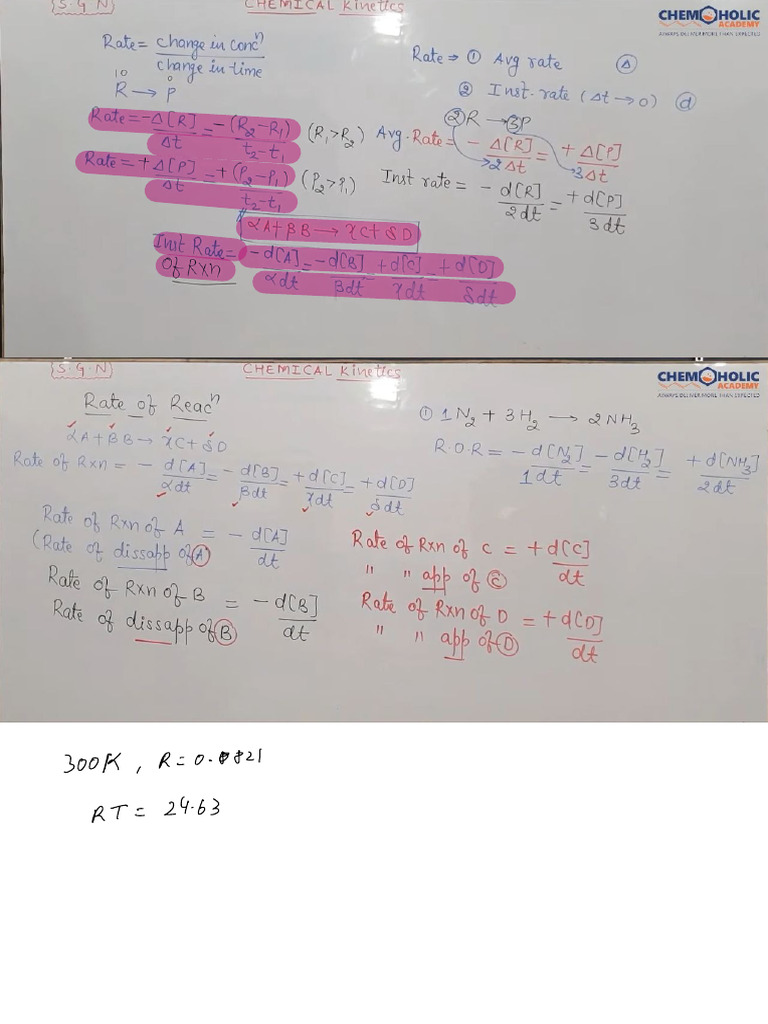 {S.G.N}
CHEMICAL Kinetics
CHEMOHOLIC
ACADEMY
ALWAYS DELIVER MORE THAN EXPECTED
Rate = change in concⁿ / change in time
10 0
R → P
Rate = -Δ[R]/Δt = -(R₂-R₁)/t₂-t₁ (R₁>R₂)
Rate = +Δ[P]/Δt = +(P₂-P₁)/t₂-t₁ (P₂>P₁)
Rate ⇒ ① Avg rate Δ
② Inst. rate (Δt→0) d
2R → 3P
Avg. Rate = -Δ[R]/2Δt = +Δ[P]/3Δt
Inst rate = -d[R]/2dt = +d[P]/3dt
αA+βB → γC+δD
Inst Rate = -d[A]/αdt = -d[B]/βdt = +d[C]/γdt = +d[D]/δdt
Of RXn
{S.G.N}
CHEMICAL Kinetics
CHEMOHOLIC
ACADEMY
ALWAYS DELIVER MORE THAN EXPECTED
Rate of Reacⁿ
αA+βB → γC+δD
Rate of Rxn = -d[A]/αdt = -d[B]/βdt = +d[C]/γdt = +d[D]/δdt
Rate of Rxn of A = -d[A]/dt
(Rate of dissapp of A
Rate of Rxn of B = -d[B]/dt
Rate of dissapp of B
① 1N₂ + 3H₂ → 2NH₃
R.O.R = -d[N₂]/1dt = -d[H₂]/3dt = +d[NH₃]/2dt
Rate of Rxn of C = +d[C]/dt
" " app of C
Rate of Rxn of D = +d[D]/dt
" " app of D
300K, R=0.0821
RT = 24.63